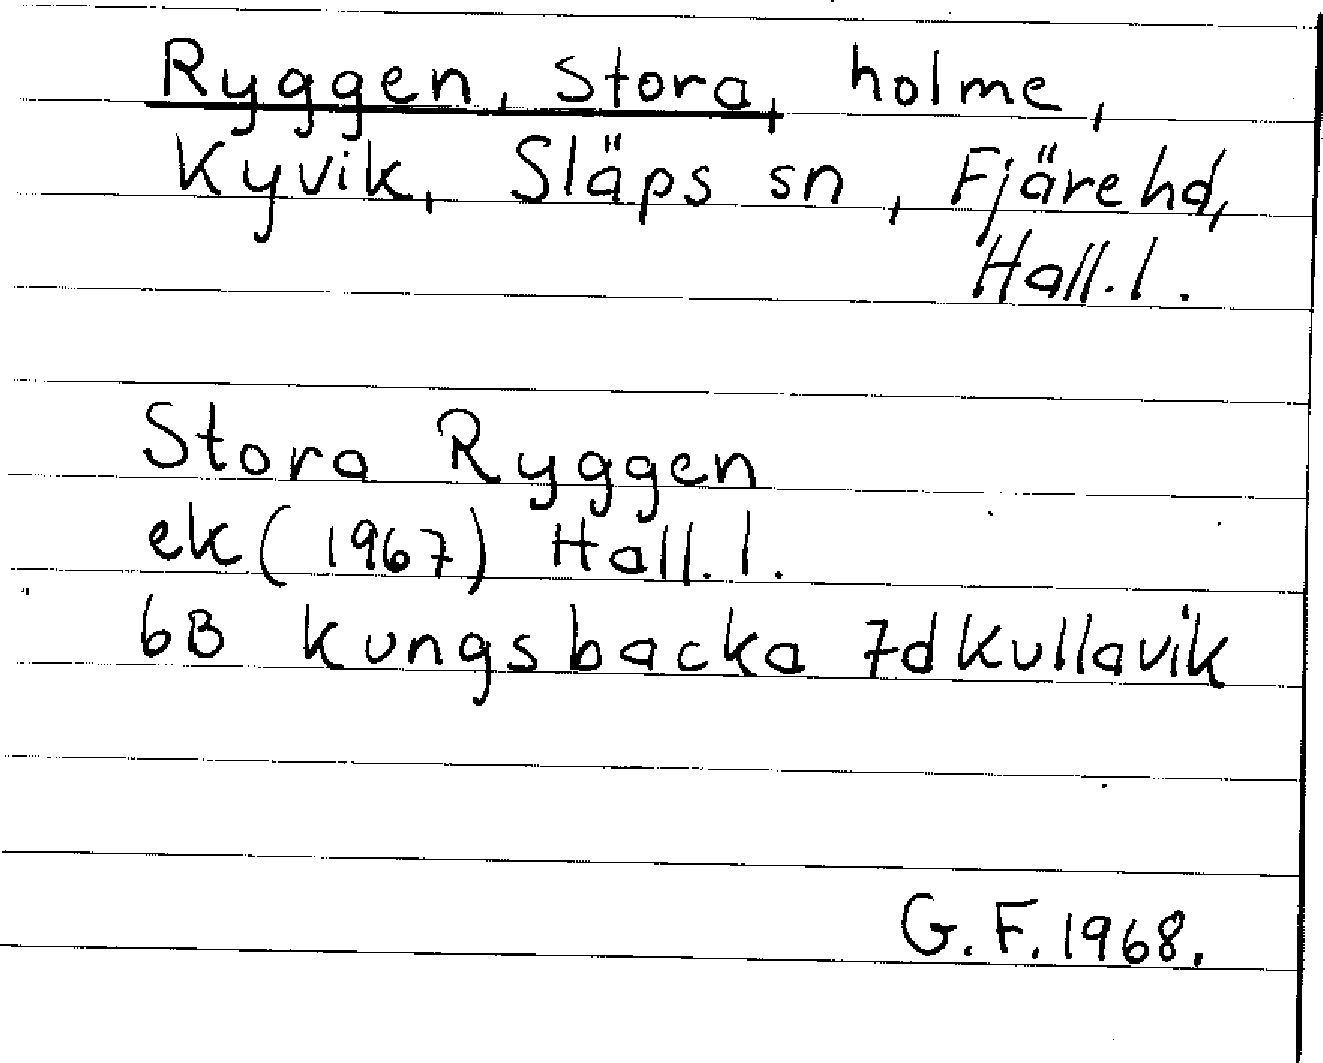 Ryggen, Stora, holme,
Kyvik, Släps sn, Fjäre hd,
Hall. l.
Stora Ryggen
ek (1967) Hall. l.
6B Kungsbacka 7d Kullavik
G. F. 1968.